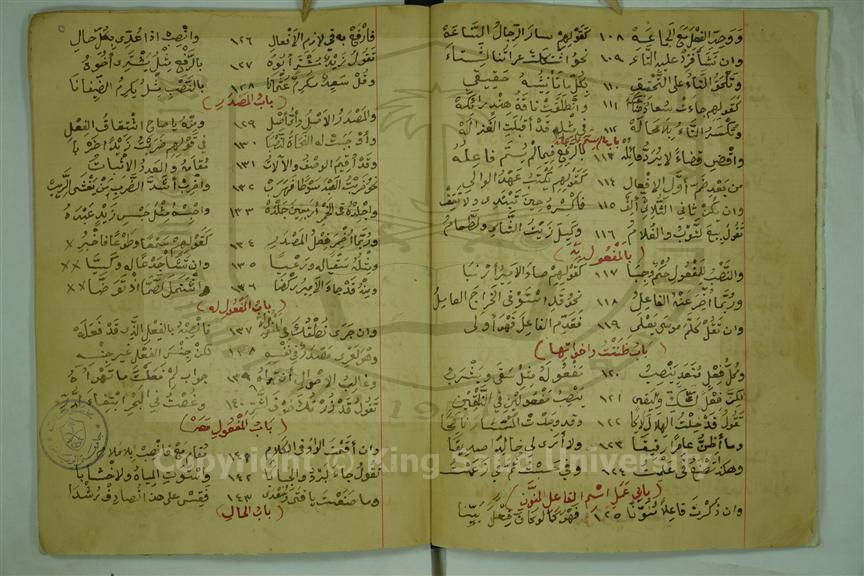 ووحد الفعل مع الجماعة ١٠٨ كقولهم سار الرجال الساعة
وان تشأ فزد عليه التاء ١٠٩ نحو اشتكت عراتنا الشتاء
وتلحق التاء على التحقيق ١١٠ بكل ما تأنيثه حقيقي
كقولهم جاءت سعاد ضاحكة ١١١ وانطلقت ناقة هند راتكة
وتكسر التاء بلا محالة ١١٢ في مثل قد أقبلت الغزالة
باب ما لم يسم فاعله
واقض قضاء لا يرد قائله ١١٣ بالرفع فيما لم يسم فاعله
من بعد ضم أول الافعال ١١٤ كقولهم يكتب عهد الوالي
وان يكن ثاني الثلاثي ألف ١١٥ فاكسره حين تبتدي ولا تقف
تقول بيع الثوب والغلام ١١٦ وكيل زيت الشام والطعام
باب المفعول به
والنصب للمفعول حكم وجبا ١١٧ كقولهم صاد الامير أرنبا
وربما أخر عنه الفاعل ١١٨ نحو قد استوفى الخراج العامل
وان تقل كلم موسى يعلى ١١٩ فقدم الفاعل فهو أولى
باب ظننت واخواتها
وكل فعل متعد ينصب ١٢٠ مفعوله مثل سقى ويشرب
لكن فعل الشك واليقين ١٢١ ينصب مفعولين في التلقين
تقول قد خلت الهلال لائحا ١٢٢ وقد وجدت المستشار ناصحا
وما أظن عامرا رفيقا ١٢٣ ولا أرى لي خالدا صديقا
وهكذا تصنع في علمت ١٢٤ وفي حسبت ثم في زعمت
باب في عمل اسم الفاعل المنون
وان ذكرت فاعلا منونا ١٢٥ فهو كما لو كان فعلا بينا
فارفع به في لازم الأفعال ١٢٦ وانصب اذا عدي بكل حال
تقول زيد مشتر أبوه ١٢٧ بالرفع مثل يشتري أخوه
وقل سعيد مكرم عثمانا ١٢٨ بالنصب مثل يكرم الضيفانا
باب المصدر
والمصدر الأصل وأي أصل ١٢٩ ومنه يا صاح اشتقاق الفعل
وأوجبت له النحاة النصبا ١٣٠ في قولهم ضربت زيدا ضربا
وقد أقيم الوصف والآلات ١٣١ مقامه والعدد الاثبات
نحو ضربت العبد سوطا فهرب ١٣٢ واضرب أشد الضرب من يغشى الريب
واجلده في الخمر أربعين جلدة ١٣٣ واحبسه مثل حبس زيد عبده
وربما أضمر فعل المصدر ١٣٤ كقولهم سمعا وطوعا فاخبر
ومثله سقيا له ورعيا ١٣٥ وان تشأ جدعا له وكيا
ومنه قد جاء الأمير ركضا ١٣٦ واشتمل الصما اذ توضا
باب المفعول له
وان جرى نطقك بالمفعول له ١٣٧ فانصبه بالفعل الذي قد فعله
وهو لعمري مصدر في نفسه ١٣٨ لكن جنس الفعل غير جنسه
وغالب الاحوال أن تراه ١٣٩ جواب لم فعلت ما تهواه
تقول قد زرتك خوف الشر ١٤٠ وغصت في البحر ابتغاء الدر
باب المفعول معه
وان أقمت الواو في الكلام ١٤١ مقام مع فانصب بلا ملام
تقول جاء البرد والجبابا ١٤٢ واستوت المياه والاخشابا
وما صنعت يا فتى وسعدى ١٤٣ فقس على هذا تصادف رشدا
باب الحال
Copyright © King Saud University